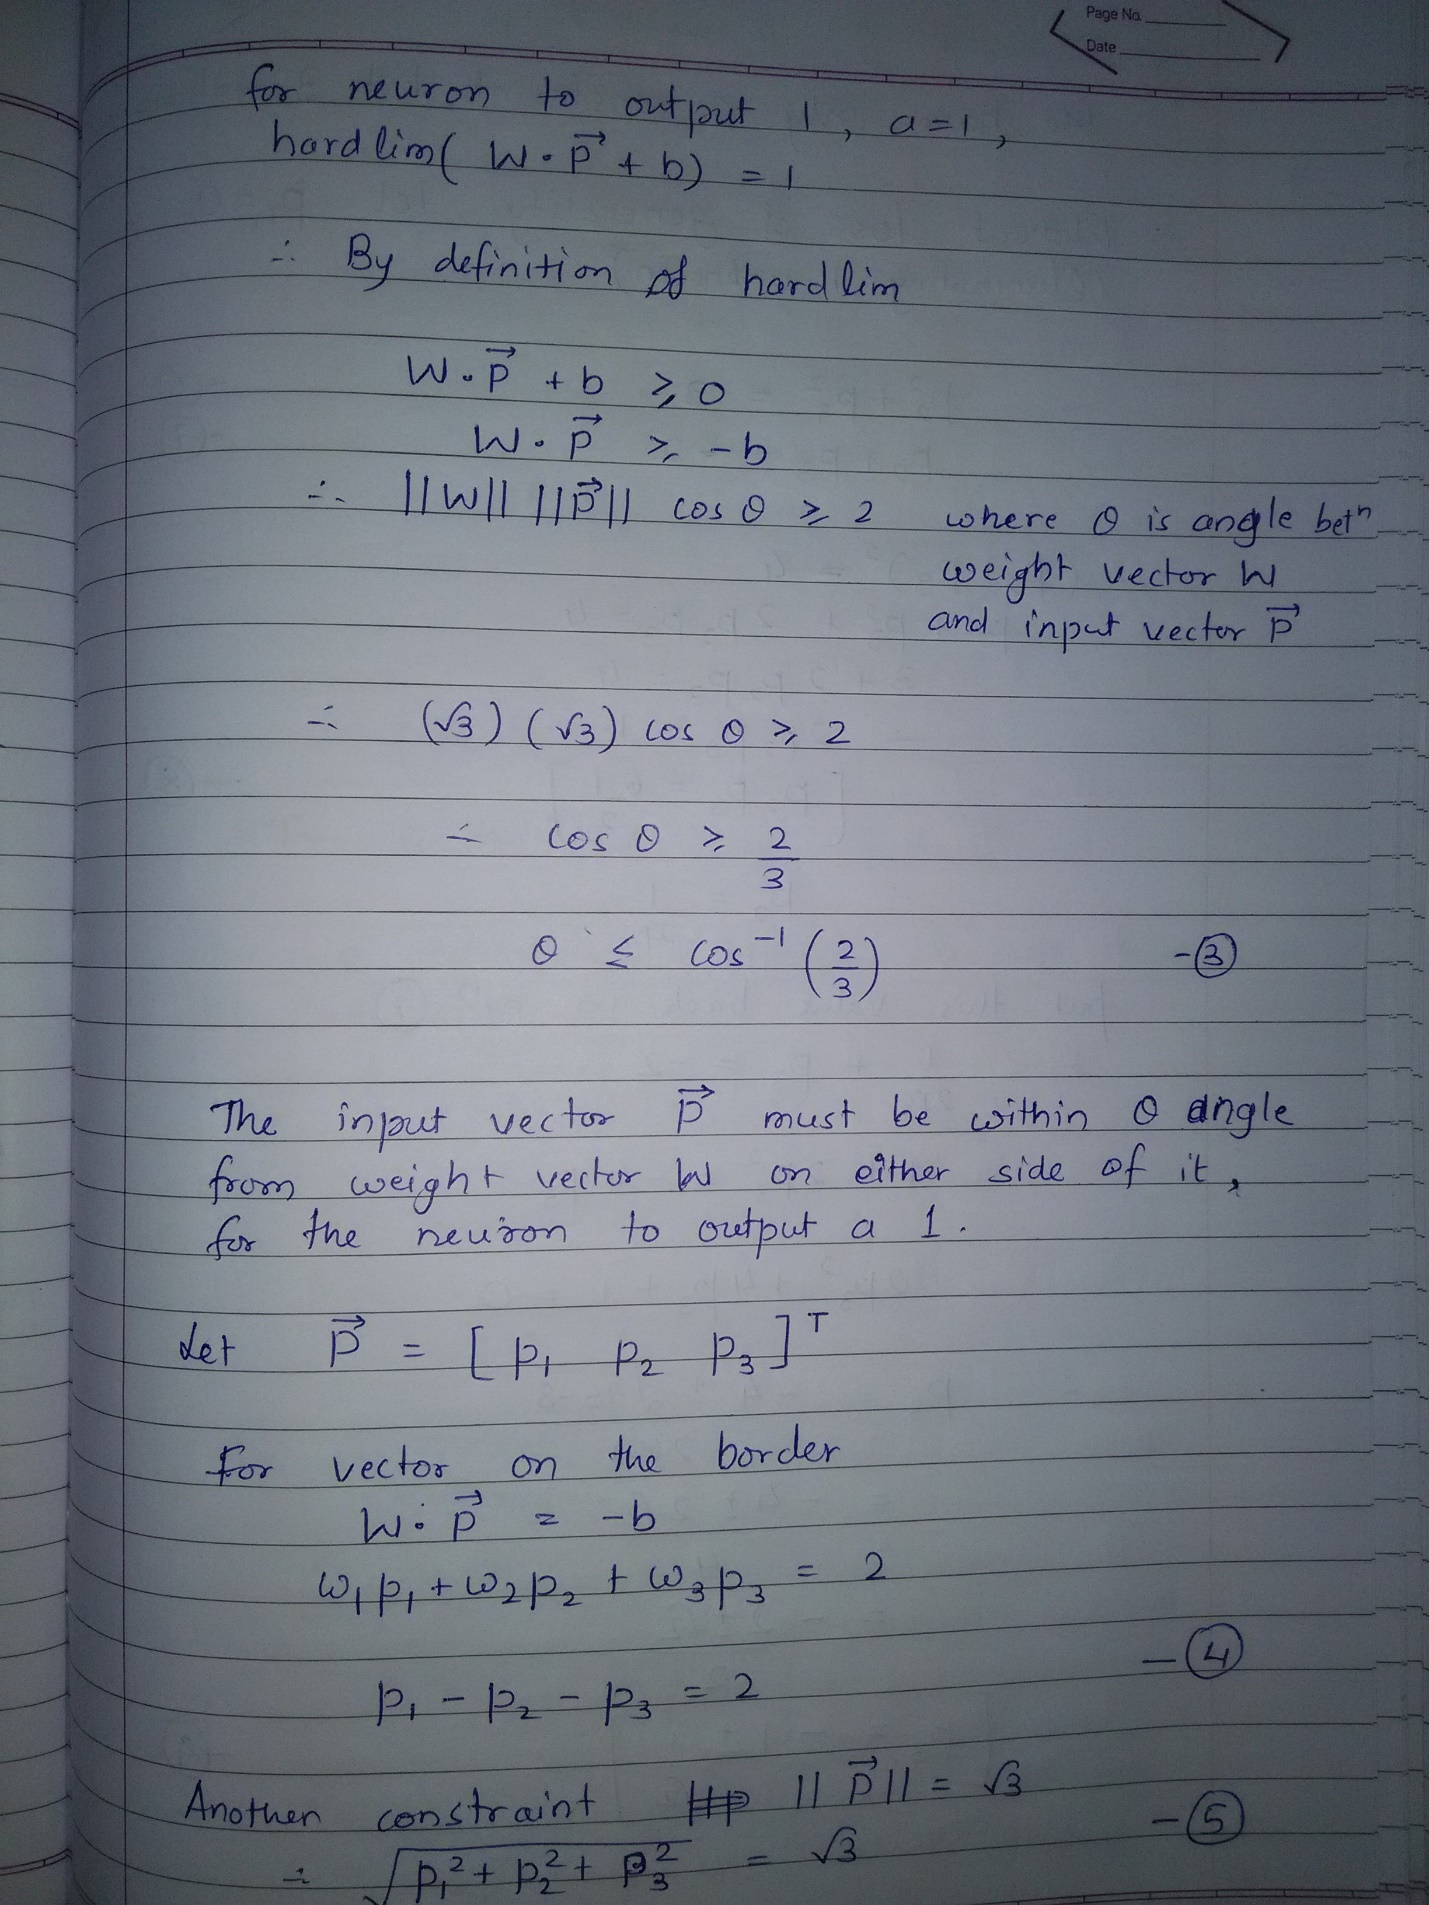 Page No.
Date
for neuron to output 1, a=1,
hardlim( W·p⃗ + b) = 1
∴ By definition of hardlim
W·p⃗ + b ≥ 0
W·p⃗ ≥ -b
∴ ||W|| ||p⃗|| cos θ ≥ 2 where θ is angle betⁿ
weight vector W
and input vector p⃗
∴ (√3) (√3) cos θ ≥ 2
∴ cos θ ≥ 2/3
θ ≤ cos⁻¹ (2/3) -③
The input vector p⃗ must be within θ angle
from weight vector W on either side of it,
for the neuron to output a 1.
Let p⃗ = [p₁ p₂ p₃]ᵀ
For vector on the border
W·p⃗ = -b
ω₁p₁ + ω₂p₂ + ω₃p₃ = 2
p₁ - p₂ - p₃ = 2 -④
Another constraint ||p⃗|| = √3
∴ √(p₁² + p₂² + p₃²) = √3 -⑤